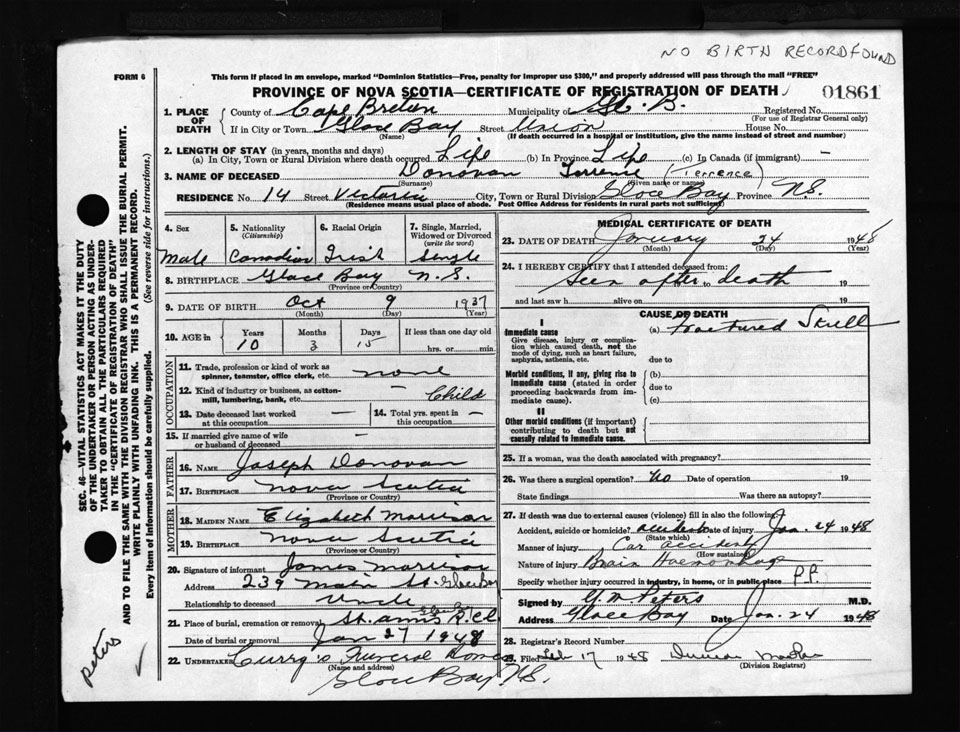 NO BIRTH RECORD FOUND
FORM 6
This form if placed in an envelope, marked "Dominion Statistics—Free, penalty for improper use $300," and properly addressed will pass through the mail "FREE"
PROVINCE OF NOVA SCOTIA—CERTIFICATE OF REGISTRATION OF DEATH 01861
1. PLACE OF DEATH County of Cape Breton Municipality of Registered No.
(For use of Registrar General only)
If in City or Town Glace Bay Street Union House No.
(Name) (If death occurred in a hospital or institution, give the name instead of street and number)
2. LENGTH OF STAY (in years, months and days)
(a) In City, Town or Rural Division where death occurred Life (b) In Province Life (c) In Canada (if immigrant) —
3. NAME OF DECEASED Donovan Terrence (Terrence)
(Surname) (Given name or names)
RESIDENCE No. 14 Street Victoria City, Town or Rural Division Glace Bay Province N.S.
(Residence means usual place of abode. Post Office Address for residents in rural parts not sufficient)
4. Sex Male
5. Nationality (Citizenship) Canadian
6. Racial Origin Irish
7. Single, Married, Widowed or Divorced (write the word) Single
8. BIRTHPLACE Glace Bay N.S.
(Province or Country)
9. DATE OF BIRTH Oct 9 1937
(Month) (Day) (Year)
10. AGE in Years 10 Months 3 Days 15 If less than one day old hrs. or min.
OCCUPATION
11. Trade, profession or kind of work as spinner, teamster, office clerk, etc. none
12. Kind of industry or business, as cotton-mill, lumbering, bank, etc. — Child
13. Date deceased last worked at this occupation — 14. Total yrs. spent in this occupation —
15. If married give name of wife or husband of deceased —
FATHER
16. NAME Joseph Donovan
17. BIRTHPLACE Nova Scotia
(Province or Country)
MOTHER
18. MAIDEN NAME Elizabeth Morrison
19. BIRTHPLACE Nova Scotia
(Province or Country)
20. Signature of informant James Morrison
Address 239 Main St. Glace Bay
Relationship to deceased Uncle
21. Place of burial, cremation or removal St. Anns R.C.
Date of burial or removal Jan 27 1948
22. UNDERTAKER Curry's Funeral Home
(Name and address)
Glace Bay N.S.
MEDICAL CERTIFICATE OF DEATH
23. DATE OF DEATH January 24 1948
(Month) (Day) (Year)
24. I HEREBY CERTIFY that I attended deceased from:
Seen after to death 19
and last saw h alive on 19
CAUSE OF DEATH
I
Immediate cause (a) Fractured Skull
Give disease, injury or complication which caused death, not the mode of dying, such as heart failure, asphyxia, asthenia, etc. due to
Morbid conditions, if any, giving rise to immediate cause (stated in order proceeding backwards from immediate cause). (b)
due to
(c)
II
Other morbid conditions (if important) contributing to death but not causally related to immediate cause.
25. If a woman, was the death associated with pregnancy?
26. Was there a surgical operation? No Date of operation 19
State findings Was there autopsy?
27. If death was due to external causes (violence) fill in also the following:
Accident, suicide or homicide? Accident Date of injury Jan. 24 1948
(State which)
Manner of injury Car accident
(How sustained)
Nature of injury Brain Haemorrhage
Specify whether injury occurred in industry, in home, or in public place P.P.
Signed by Peters M.D.
Address Glace Bay Date Jan. 24 1948
28. Registrar's Record Number
29. Filed Feb 17 1948 Duncan
(Division Registrar)
SEC. 46—VITAL STATISTICS ACT MAKES IT THE DUTY
OF THE UNDERTAKER OR PERSON ACTING AS UNDER-
TAKER TO OBTAIN ALL THE PARTICULARS REQUIRED
IN THE "CERTIFICATE OF REGISTRATION OF DEATH"
AND TO FILE THE SAME WITH THE DIVISION REGISTRAR WHO SHALL ISSUE THE BURIAL PERMIT.
WRITE PLAINLY WITH UNFADING INK. THIS IS A PERMANENT RECORD.
Every item of information should be carefully supplied. (See reverse side for instructions.)
Peters